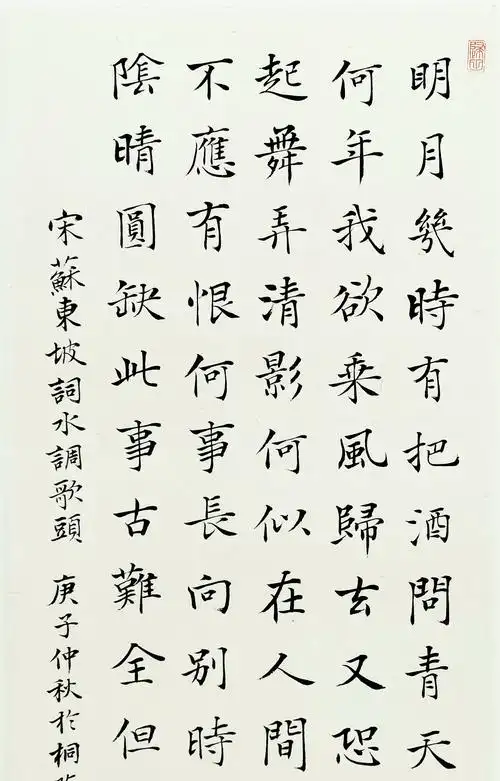 明月幾時有把酒問青天
何年我欲乘風歸去又恐
起舞弄清影何似在人間
不應有恨何事長向別時
陰晴圓缺此事古難全但
宋蘇東坡詞水調歌頭 庚子仲秋於桐